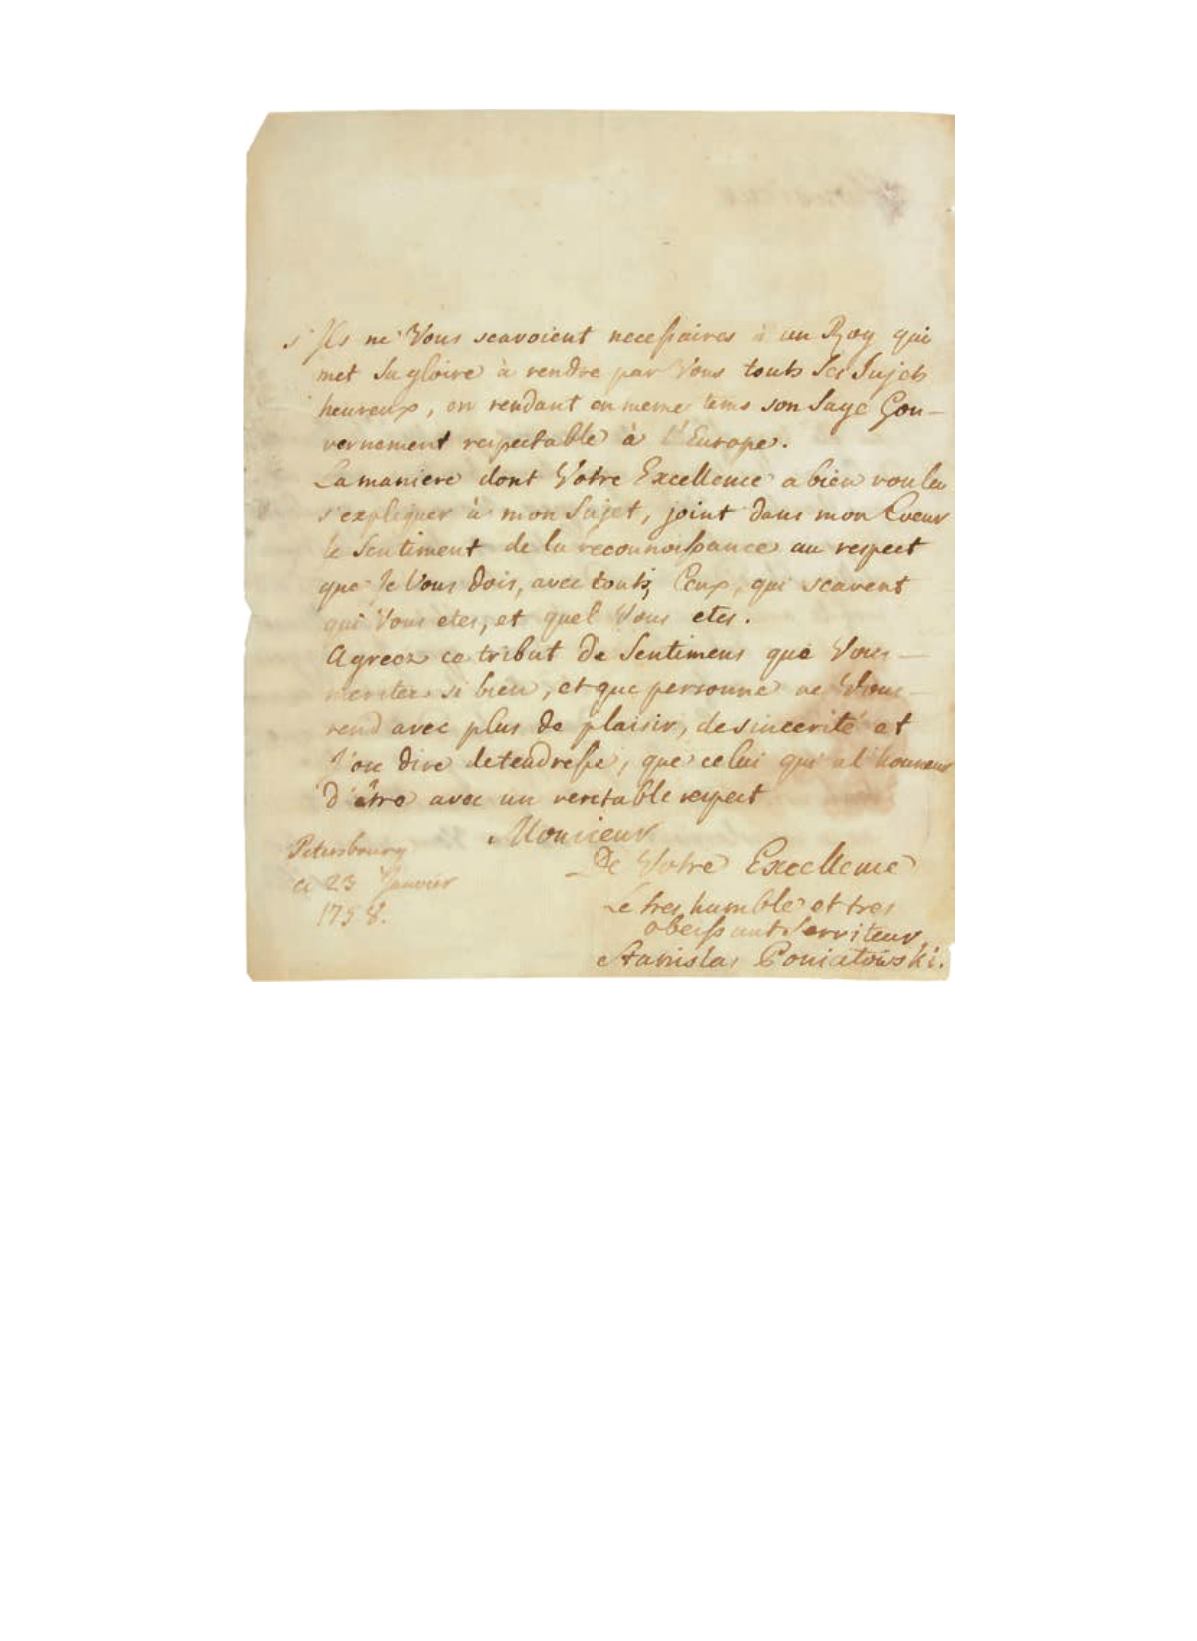 s'Ils ne Vous scavoient necessaires à un Roy qui
met Sa gloire à rendre par Vous touts Ses Sujets
heureux, en rendant en meme tems son Sage Gou-
vernement respectable à l'Europe.
La maniere dont Votre Excellence a bien voulu
s'expliquer à mon Sujet, joint dans mon Coeur
le Sentiment de la reconnoissance au respect
que Je Vous dois, avec touts Ceux, qui scavent
qui Vous etes, et quel Vous etes.
Agreez ce tribut de Sentimens que Vous
meritez si bien, et que personne ne Vous
rend avec plus de plaisir, de sincerité et
J'ose dire de tendresse, que celui qui a l'honneur
d'être avec un veritable respect
Monsieur
De Votre Excellence
Petersbourg
ce 23 Janvier
1758.
Le tres humble et tres
obeissant Serviteur,
Stanislas Poniatowski.